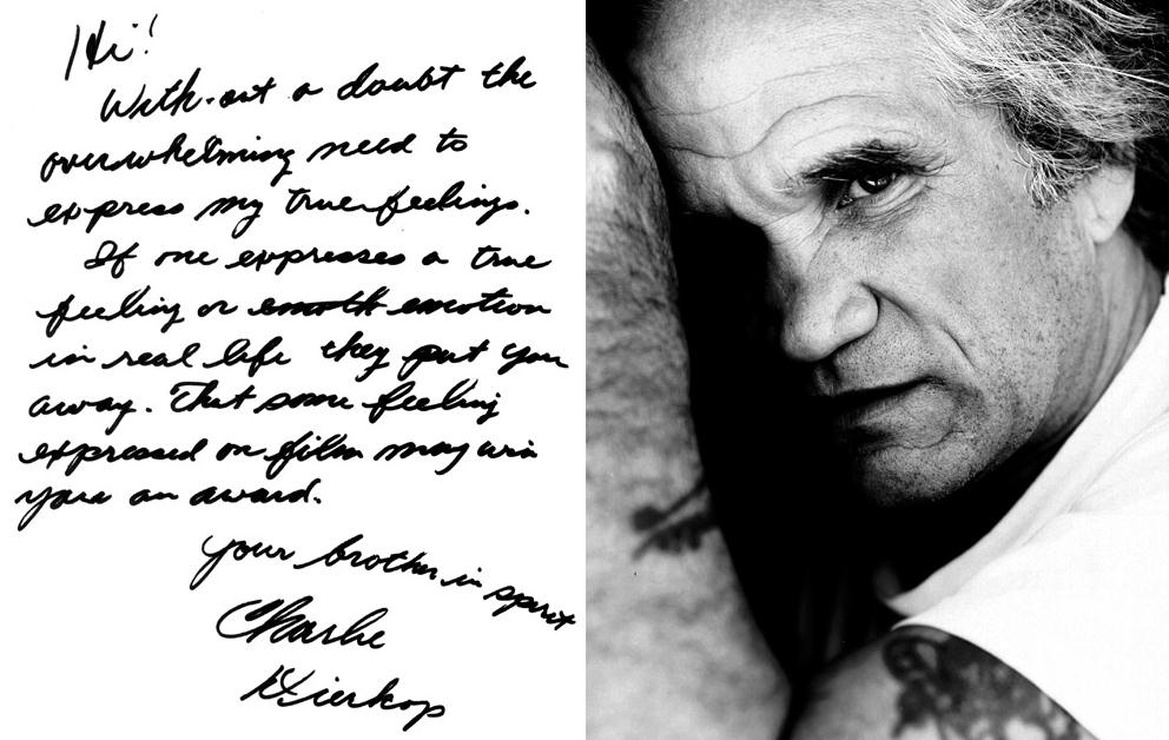 Hi!
With-out a doubt the
overwhelming need to
express my true feelings.
If one expresses a true
feeling or emotion
in real life they put you
away. That same feeling
expressed on film may win
you an award.
Your brother in spirit
Charlie
Dierkop